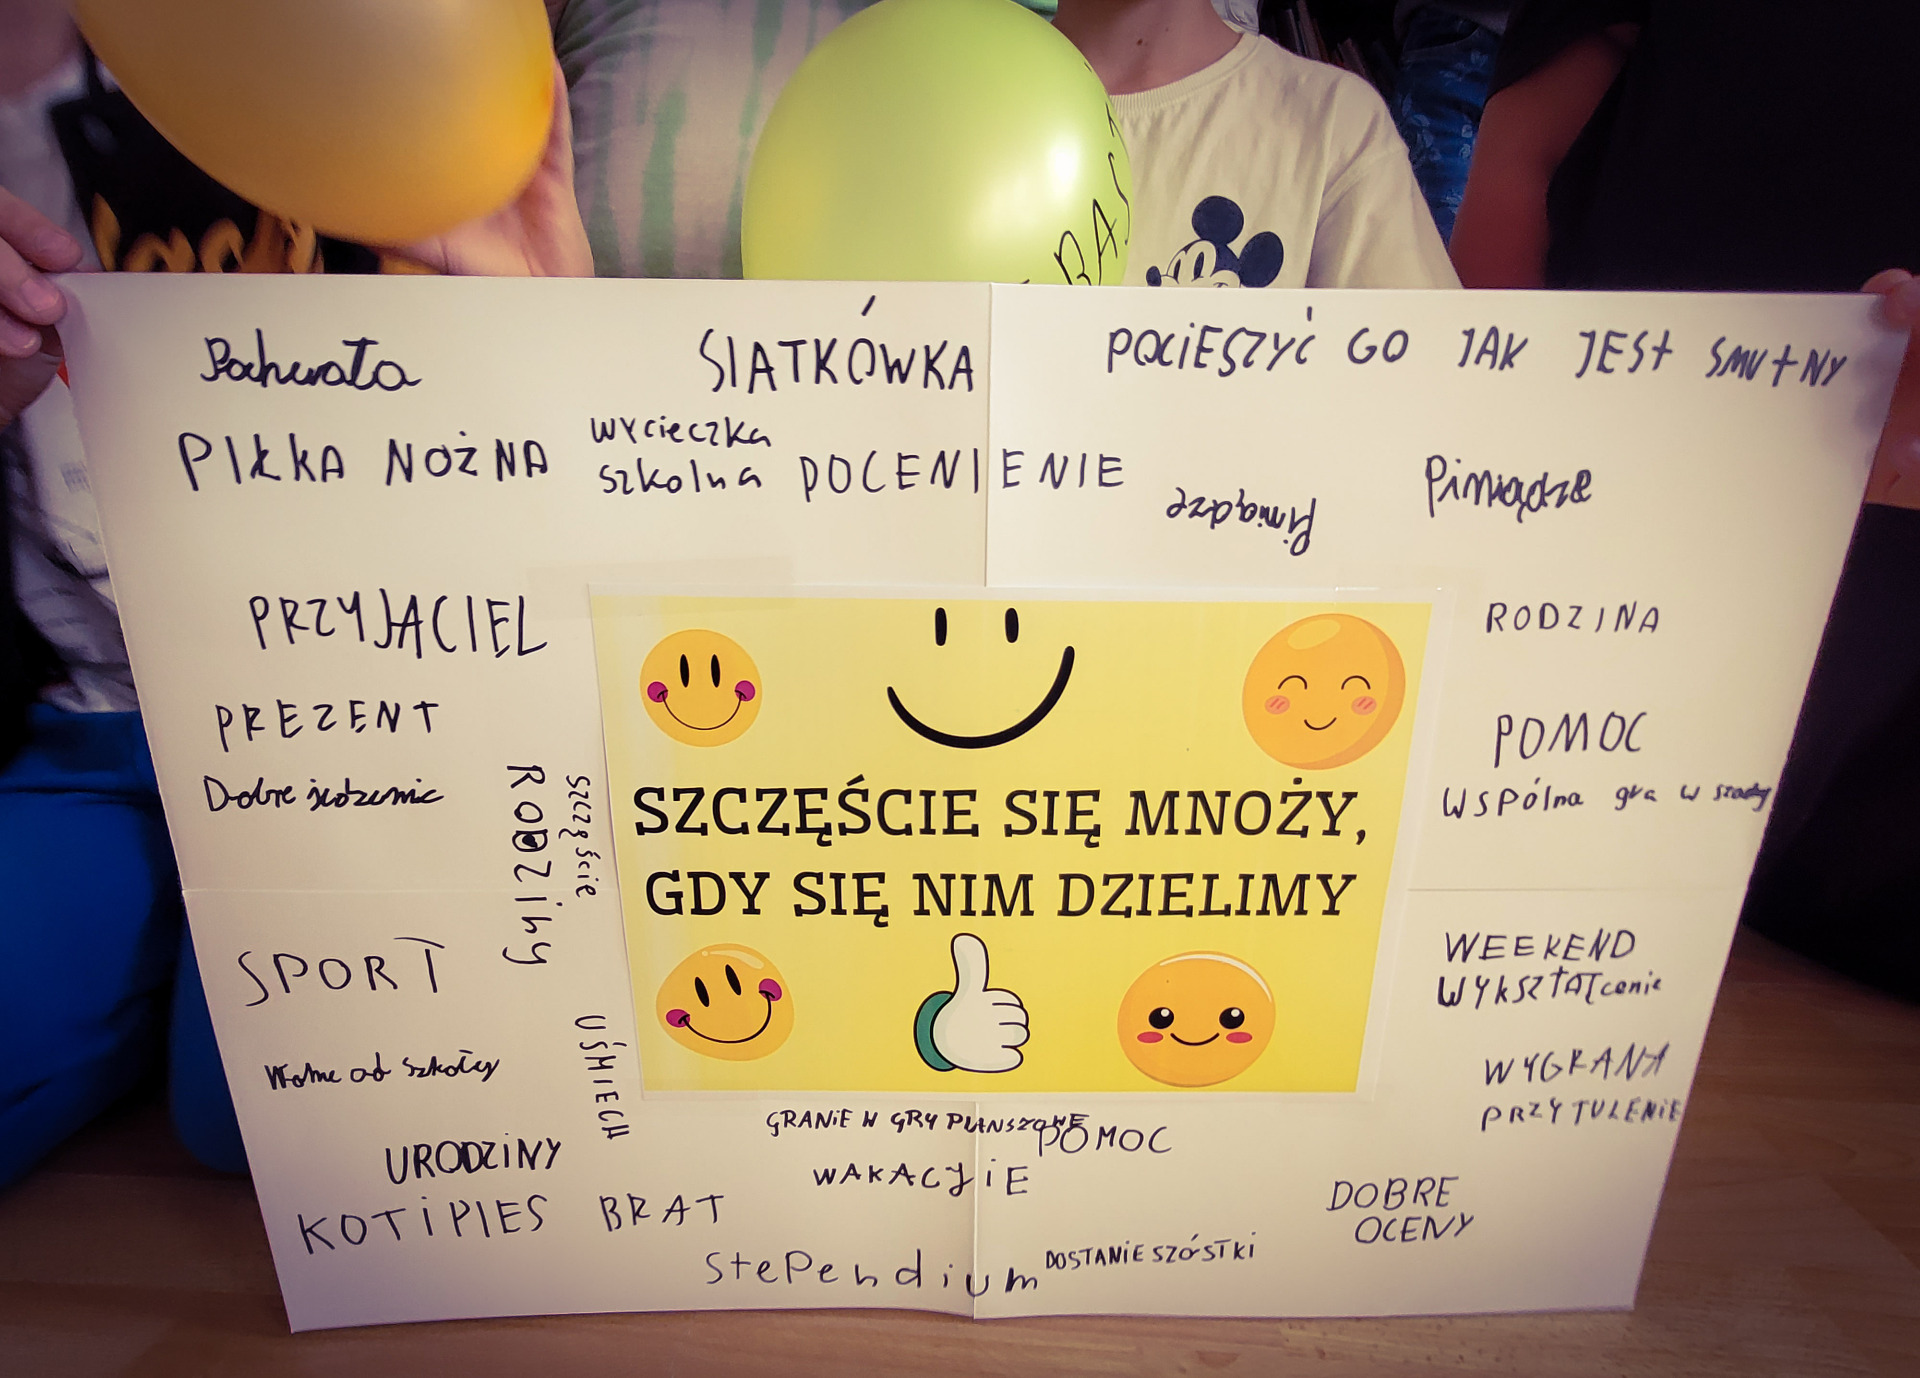 Pochwała
SIATKÓWKA
POCIESZYĆ GO JAK JEST SMUTNY
PIŁKA NOŻNA
wycieczka
szkolna
DOCENIENIE
Pieniądze
Pieniądze
PRZYJACIEL
RODZINA
PREZENT
POMOC
Dobre jedzenie
WSPólna gra w szachy
szczęście
RODZINY
SZCZĘŚCIE SIĘ MNOŻY,
GDY SIĘ NIM DZIELIMY
SPORT
WEEKEND
WYKSZTAŁcenie
Wolne od szkoły
UŚMIECH
WYGRANA
PRZYTULENIE
GRANiE W GRY PLANSZOWE
POMOC
URODZiNY
WAKACJiE
KOT i PIES
BRAT
DOBRE
OCENY
StePendium
DOSTANiE SZÓSTKi